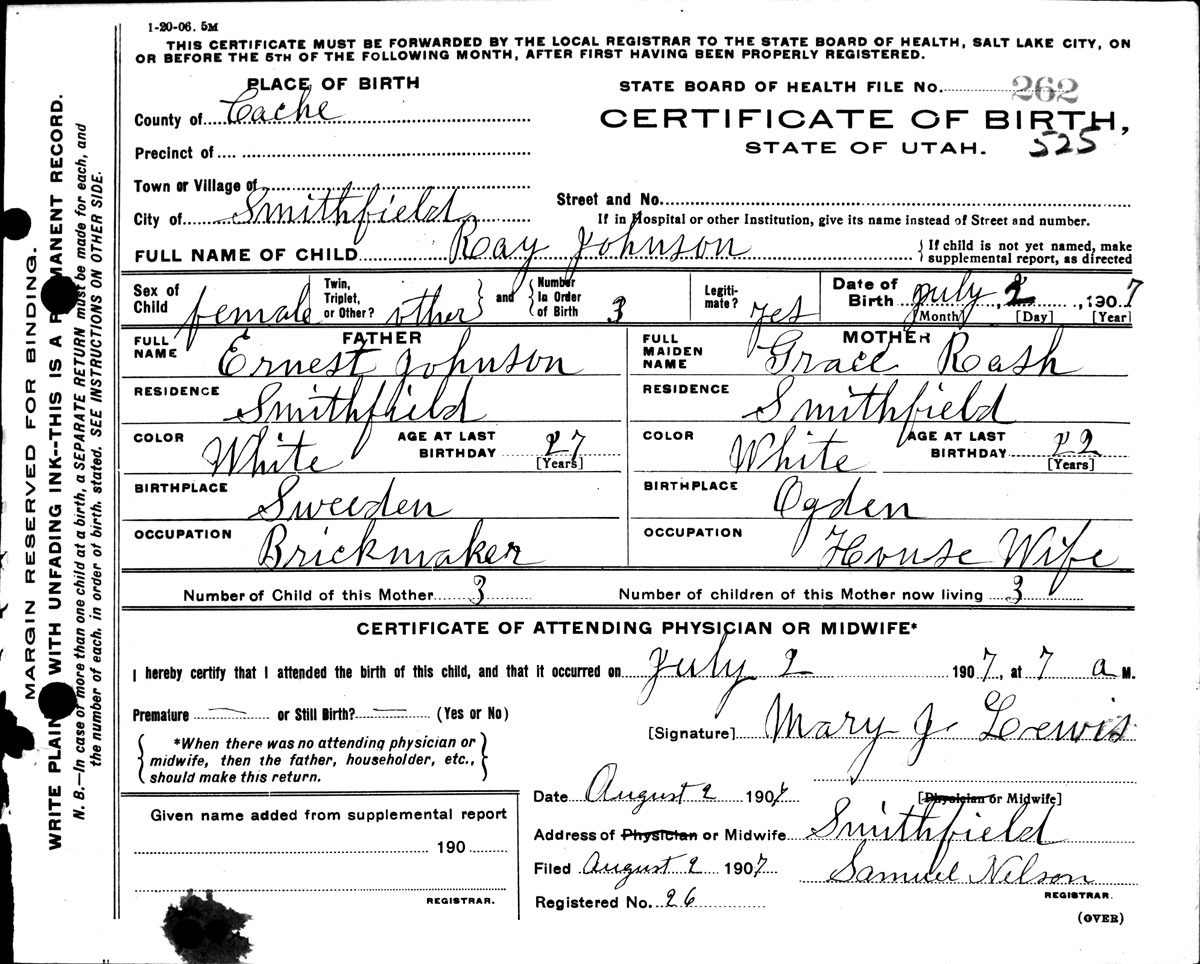 1-20-06. 5M
THIS CERTIFICATE MUST BE FORWARDED BY THE LOCAL REGISTRAR TO THE STATE BOARD OF HEALTH, SALT LAKE CITY, ON
OR BEFORE THE 5TH OF THE FOLLOWING MONTH, AFTER FIRST HAVING BEEN PROPERLY REGISTERED.
PLACE OF BIRTH
STATE BOARD OF HEALTH FILE NO. 262
County of Cache
CERTIFICATE OF BIRTH,
525
STATE OF UTAH.
Precinct of
Town or Village of
Street and No.
City of Smithfield
If in Hospital or other Institution, give its name instead of Street and number.
FULL NAME OF CHILD Ray Johnson
If child is not yet named, make
supplemental report, as directed
Sex of Child female
Twin, Triplet, or Other? other
and Number In Order of Birth 3
Legiti-mate? yes
Date of Birth July 2, 1907
[Month] [Day] [Year]
FATHER
FULL NAME Ernest Johnson
RESIDENCE Smithfield
COLOR White AGE AT LAST BIRTHDAY 27 [Years]
BIRTHPLACE Sweeden
OCCUPATION Brickmaker
MOTHER
FULL MAIDEN NAME Grace Rash
RESIDENCE Smithfield
COLOR White AGE AT LAST BIRTHDAY 22 [Years]
BIRTHPLACE Ogden
OCCUPATION House Wife
Number of Child of this Mother 3 Number of children of this Mother now living 3
CERTIFICATE OF ATTENDING PHYSICIAN OR MIDWIFE*
I hereby certify that I attended the birth of this child, and that it occurred on July 2 1907, at 7 a M.
Premature — or Still Birth? — (Yes or No)
[Signature] Mary J Lewis
*When there was no attending physician or
midwife, then the father, householder, etc.,
should make this return.
Date August 2 1907
[Physician or Midwife]
Given name added from supplemental report
190
REGISTRAR.
Address of Physician or Midwife Smithfield
Filed August 2 1907 Samuel Nelson
REGISTRAR.
Registered No. 26
(OVER)
MARGIN RESERVED FOR BINDING.
WRITE PLAIN WITH UNFADING INK--THIS IS A PERMANENT RECORD.
N. B.—In case of more than one child at a birth, a SEPARATE RETURN must be made for each, and
the number of each, in order of birth, stated. SEE INSTRUCTIONS ON OTHER SIDE.